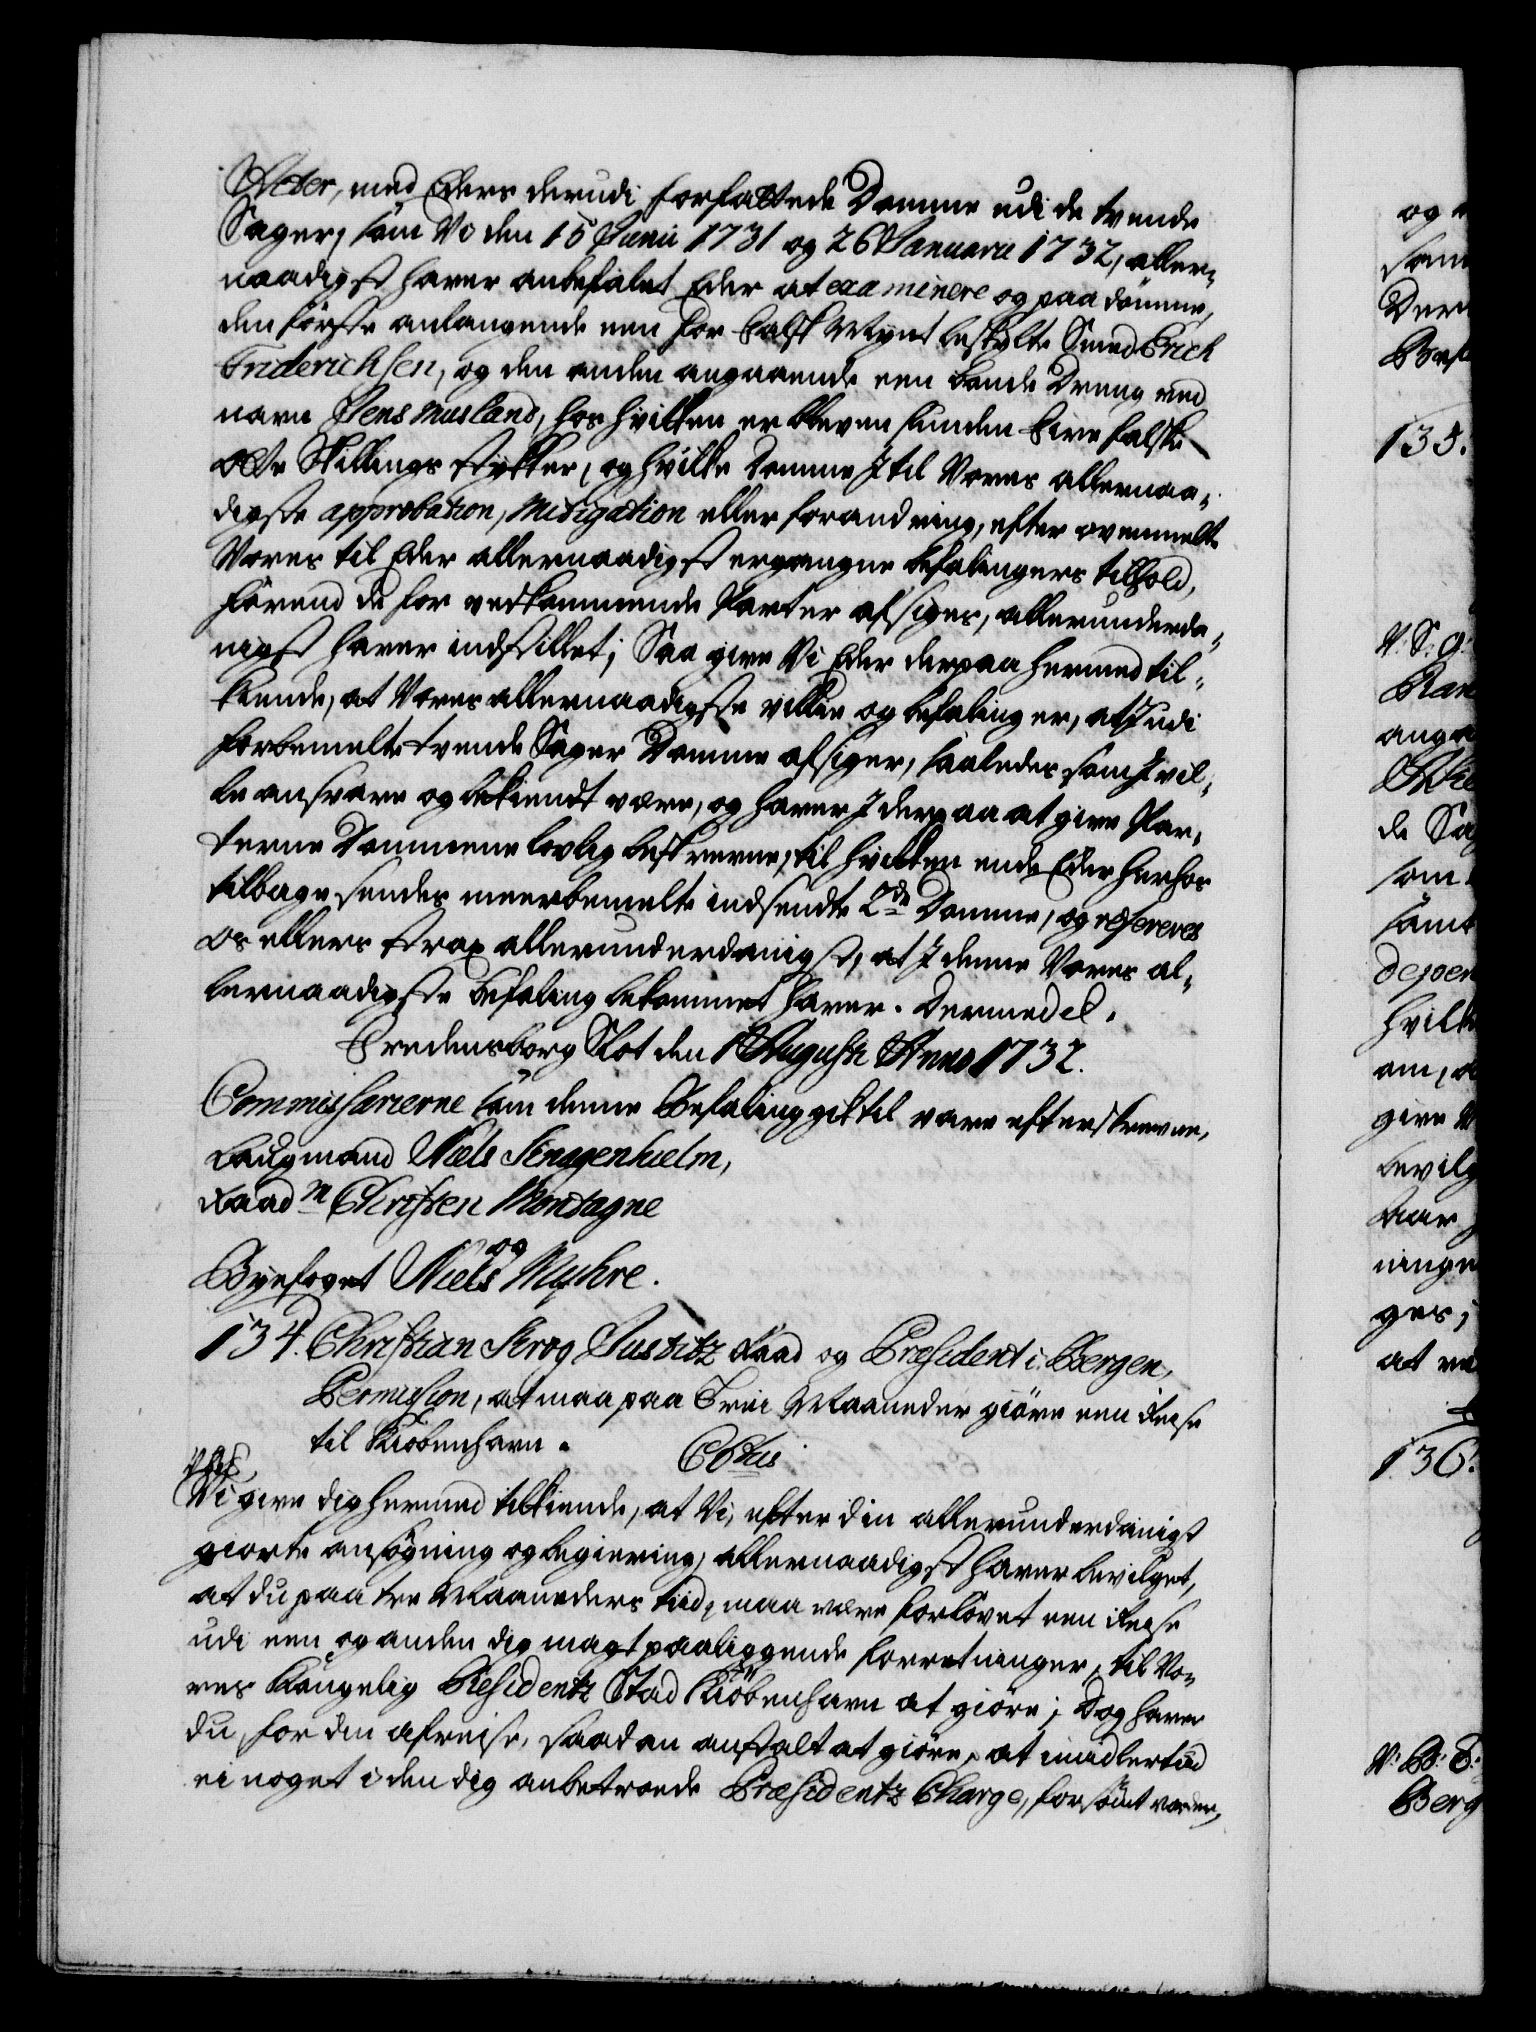 Acter, med Eders derudi forfattede Domme udi de tvende
Sager, som Vi den 15 Junii 1731 og 26 Januarii 1732, aller-
naadigst haver anbefalet Eder at examinere og paadömme,
den förste anlangende een for falsk Mynt beskylte Smed Erich
Friderichsen, og den anden angaaende een bonde Dreng ved
navn Jens Musland, hos hvilken er bleven funden fire falske
Otte Skillings stykker, og hvilke Domme I til Vores allernaa-
digste approbation, Mitigation eller forandring, efter ovenmelte
Vores til Eder allernaadigst ergangne befalingers tilhold,
förend de for vedkommende Parter afsiges, allerunderda-
nigst haver indstillet; Saa give Vi Eder derpaa hermed til-
kiende, at Vores allernaadigste villie og befaling er, at I udi
forbemelte tvende Sager Domme afsiger, saaledes som I vil-
le ansvare og bekiendt være, og haver I derpaa at give Par-
terne Dommene lovlig beskrevne, til hvilken ende Eder herhos
tilbage sendes meerbemelte indsendte 2de Domme, og refereres
os ellers strax allerunderdanigst, at I denne Vores al-
lernaadigste befaling bekommet haver. Dermed el.
Fredensborg Slot den 1 Augusti Anno 1732.
Commissarierne som denne Befaling gik til vare efterskrevne,
Laugmand Niels Knagenhielm,
Raadm Christen Montagne
og
Byefoget Niels Myhre.
134. Christian Krog Justitz Raad og Præsident i Bergen,
Permission, at maa paa Trei Maaneder giöre een Reise
til Kiöbenhavn.
Vi give dig hermed tilkiende, at Vi, efter din allerunderdanigst
giorte ansögning og begiering, allernaadigst haver bevilget,
at du paa tre Maaneders tiid, maa være forlövet een Reise
udi een og anden dig magtpaaliggende forretninger, til Vo-
res Kongelig Residentz Stad Kiöbenhavn at giöre; Dog haver
du, for din afreise, saadan anstalt at giöre, at imidlertid
ei noget i den dig anbetroede Præsidentz Charge, forsömt vorder,
og
som
Der
135.
V. S. G.
ang
de Sa
som
samt
depon
hvilk
om,
give V
bevilg
Aar
ninge
ges;
at
136.
Berg